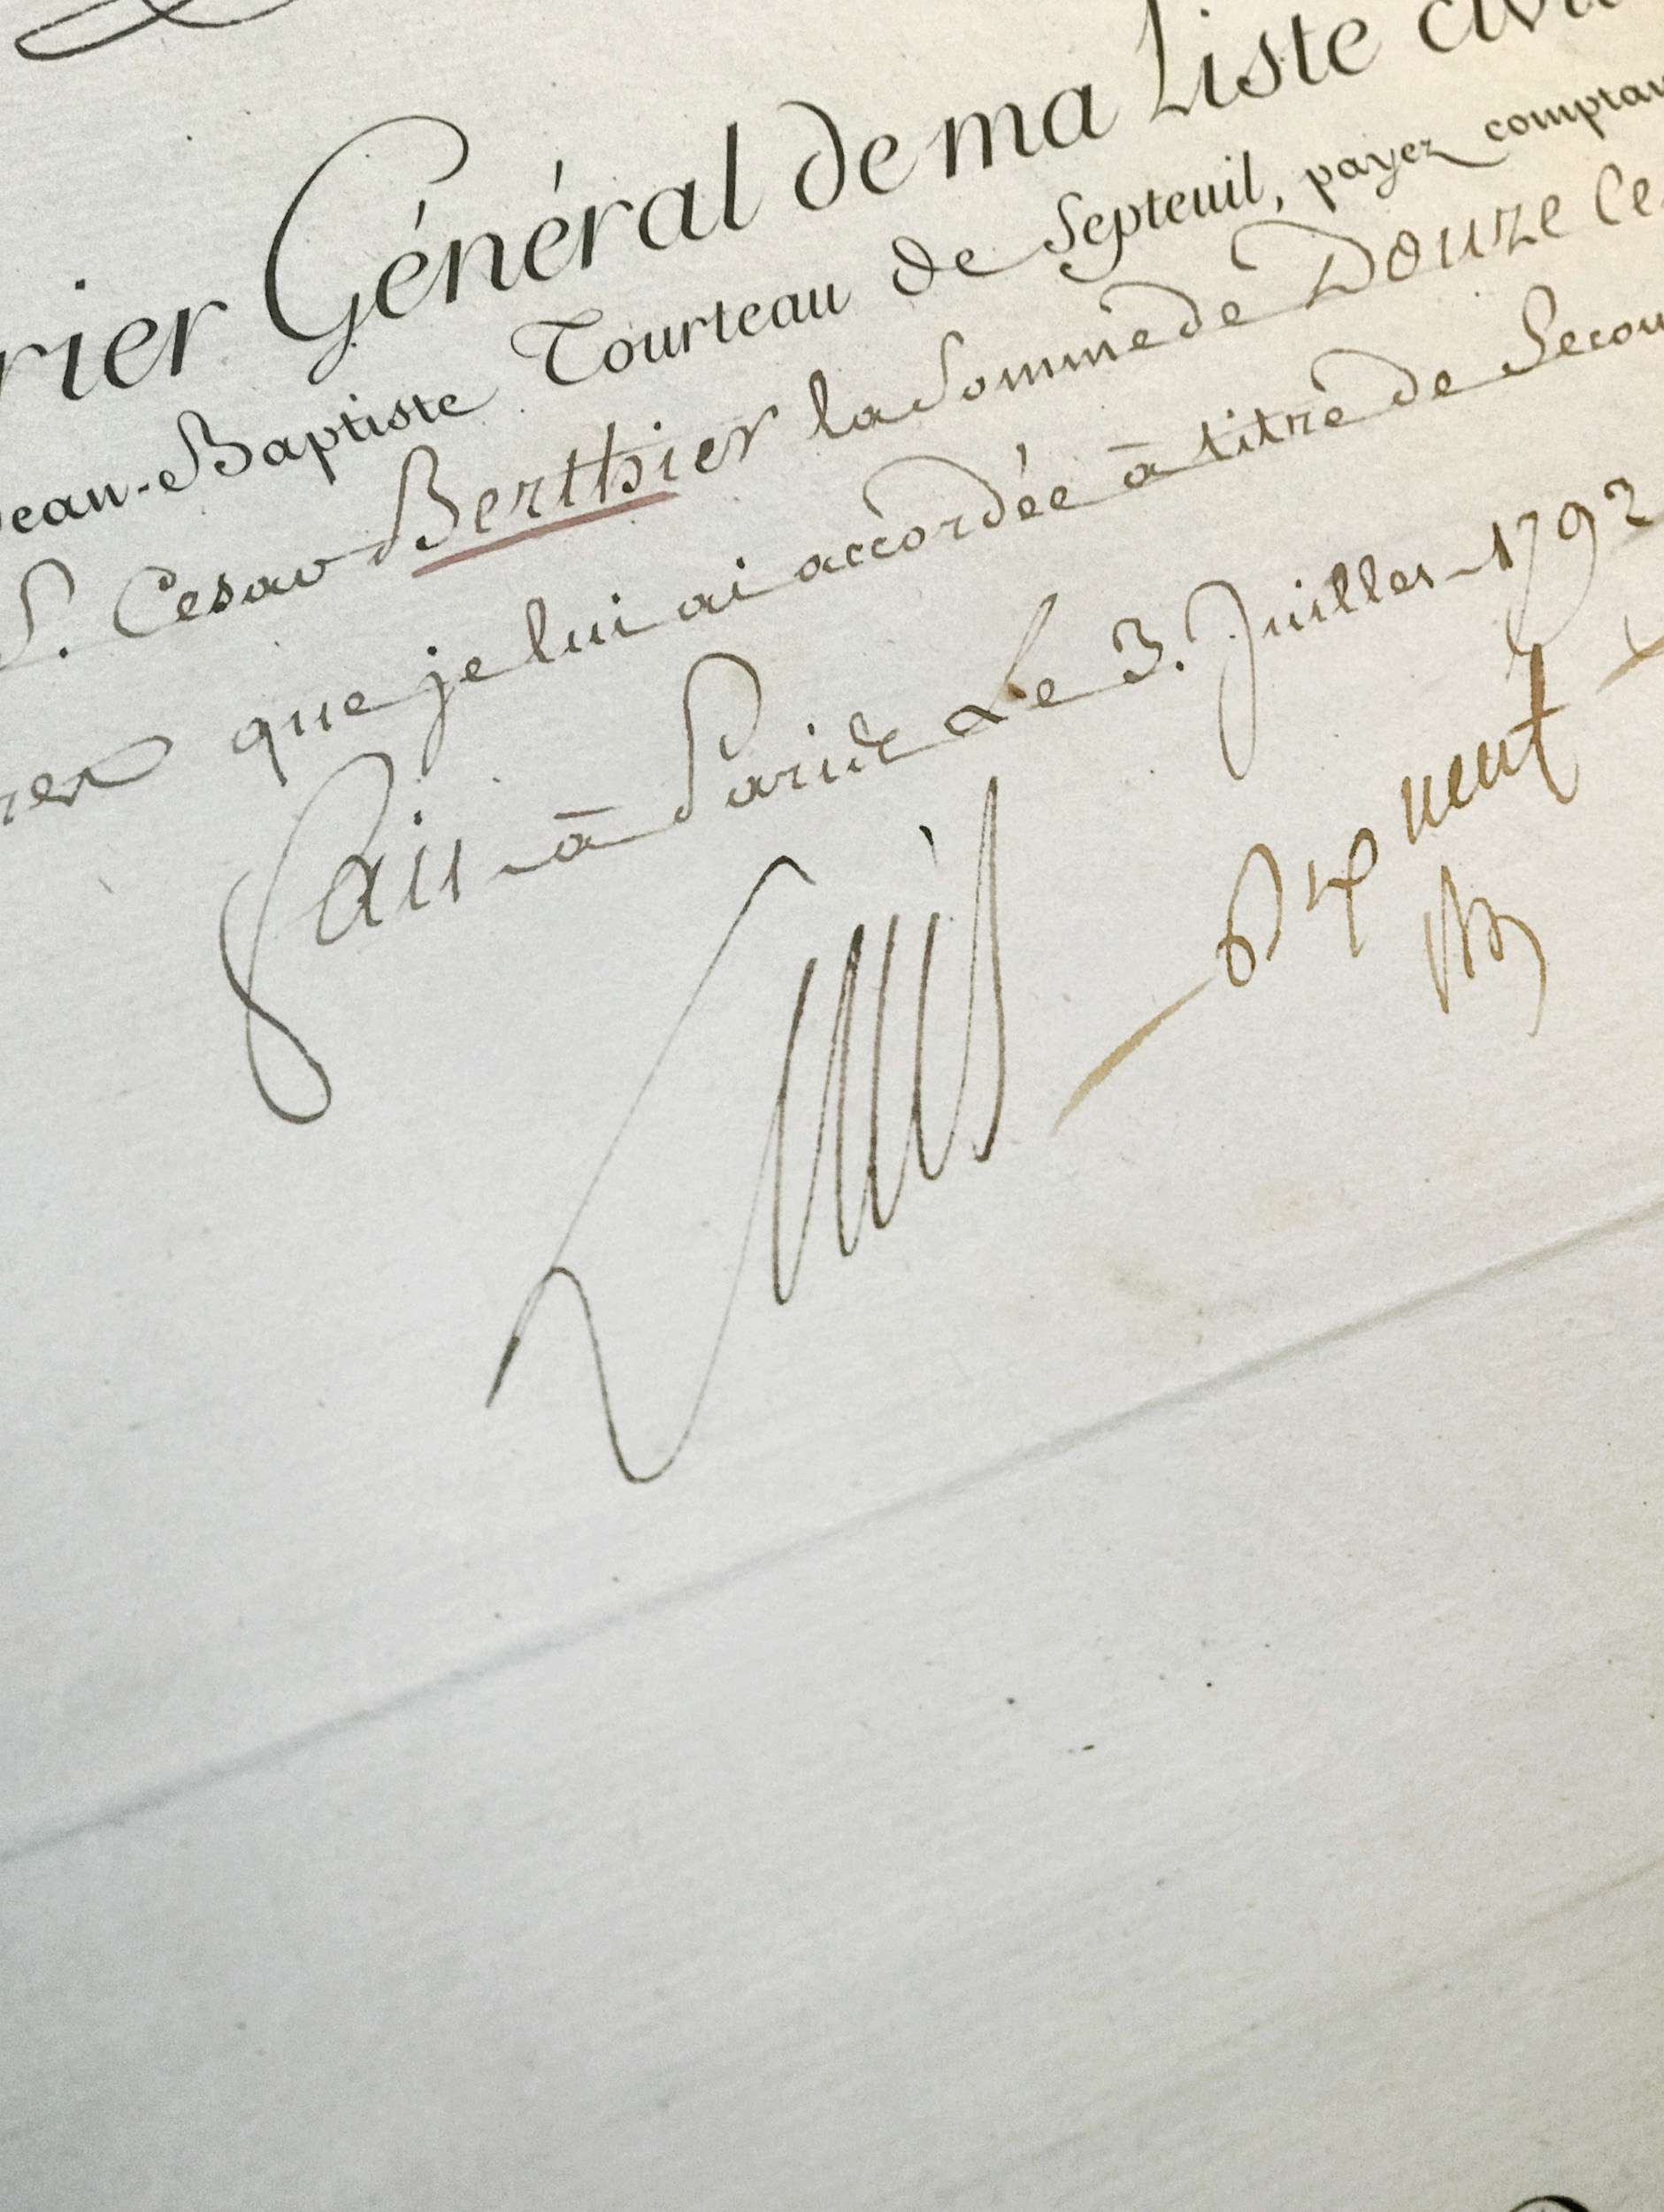 rier Général de ma Liste civil
ean-Baptiste Tourteau de Septeuil, payez comptan
S. Cesar Berthier la Somme de Douze Ce
que je lui ai accordée à titre de Secou
Fait à Paris Le 3. Juillet 1792
Louis